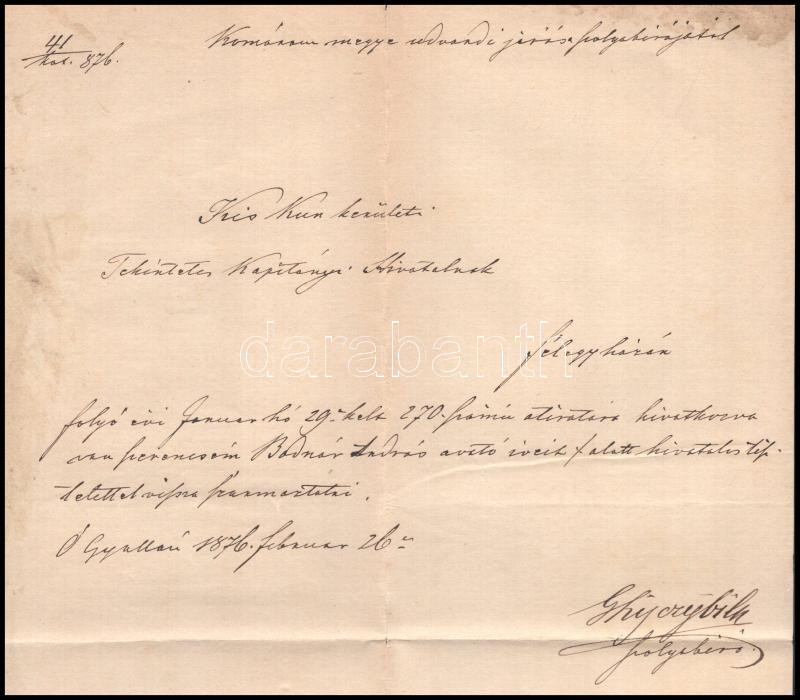 41
kat. 876.
Komárom megye udvardi járás szolgabirájától
Kis Kun kerületi
Tekintetes Kapitányi Hivatalnak
Félegyházán
folyó évi Januar hó 29-én kelt 270. számú átiratára hivatkozva
van szerencsém Bodnár András avató iveit ./. alatt hivatalos tisz-
telettel vissza származtatni.
Ó Gyallán 1876. februar 26án
Ghyczy Béla
szolgabiró
darabanth